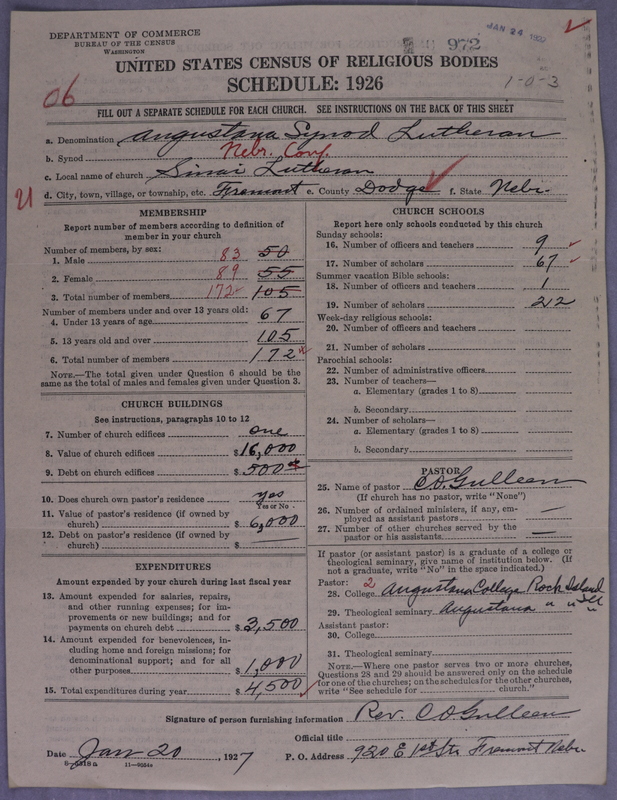 DEPARTMENT OF COMMERCE
BUREAU OF THE CENSUS
WASHINGTON
972
JAN 24
UNITED STATES CENSUS OF RELIGIOUS BODIES
SCHEDULE: 1926
1-0-3
06
FILL OUT A SEPARATE SCHEDULE FOR EACH CHURCH. SEE INSTRUCTIONS ON THE BACK OF THIS SHEET
a. Denomination Augustana Synod Lutheran
b. Synod Nebr. Conf.
c. Local name of church Sinai Lutheran
d. City, town, village, or township, etc. Fremont e. County Dodge f. State Nebr.
MEMBERSHIP
Report number of members according to definition of
member in your church
Number of members, by sex:
1. Male 83 50
2. Female 89 55
3. Total number of members 172 105
Number of members under and over 13 years old:
4. Under 13 years of age 67
5. 13 years old and over 105
6. Total number of members 172
NOTE.—The total given under Question 6 should be
same as the total of males and females given under Question 3.
CHURCH BUILDINGS
See instructions, paragraphs 10 to 12
7. Number of church edifices one
8. Value of church edifices $16,000
9. Debt on church edifices $500
10. Does church own pastor's residence yes
Yes or No
11. Value of pastor's residence (if owned by
church) $6,000
12. Debt on pastor's residence (if owned by
church) $
EXPENDITURES
Amount expended by your church during last fiscal year
13. Amount expended for salaries, repairs,
and other running expenses; for im-
provements or new buildings; and for
payments on church debt $3,500
14. Amount expended for benevolences, in-
cluding home and foreign missions; for
denominational support; and for all
other purposes $1,000
15. Total expenditures during year $4,500
CHURCH SCHOOLS
Report here only schools conducted by this church
Sunday schools:
16. Number of officers and teachers 9
17. Number of scholars 67
Summer vacation Bible schools:
18. Number of officers and teachers 1
19. Number of scholars 22
Week-day religious schools:
20. Number of officers and teachers
21. Number of scholars
Parochial schools:
22. Number of administrative officers
23. Number of teachers—
a. Elementary (grades 1 to 8)
b. Secondary
24. Number of scholars—
a. Elementary (grades 1 to 8)
b. Secondary
PASTOR
25. Name of pastor C.O. Gulleen
(If church has no pastor, write "None")
26. Number of ordained ministers, if any, em-
ployed as assistant pastors —
27. Number of other churches served by the
pastor or his assistants —
If pastor (or assistant pastor) is a graduate of a college or
theological seminary, give name of institution below. (If
not a graduate, write "No" in the space indicated.)
Pastor: 2
28. College Augustana College Rock Island Ill
29. Theological seminary Augustana " "
Assistant pastor:
30. College
31. Theological seminary
NOTE.—Where one pastor serves two or more churches,
Questions 28 and 29 should be answered only on the schedule
for one of the churches; on the schedules for the other churches,
write "See schedule for church."
Signature of person furnishing information Rev. C O Gulleen
Official title
Date Jan 20, 1927 P. O. Address 920 E 1st Str Fremont Nebr
11—9504a